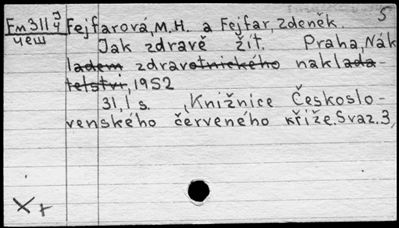 Fm311 J Fejfarová, M.H. a Fejfar, Zdeněk. 5
чеш Jak zdravě žít. Praha, Nák
ladem zdravotnického naklada-
telství, 1952
31, 1 s. , Knižnice Českoslo-
venského červeného kříže. Svaz. 3,
X+